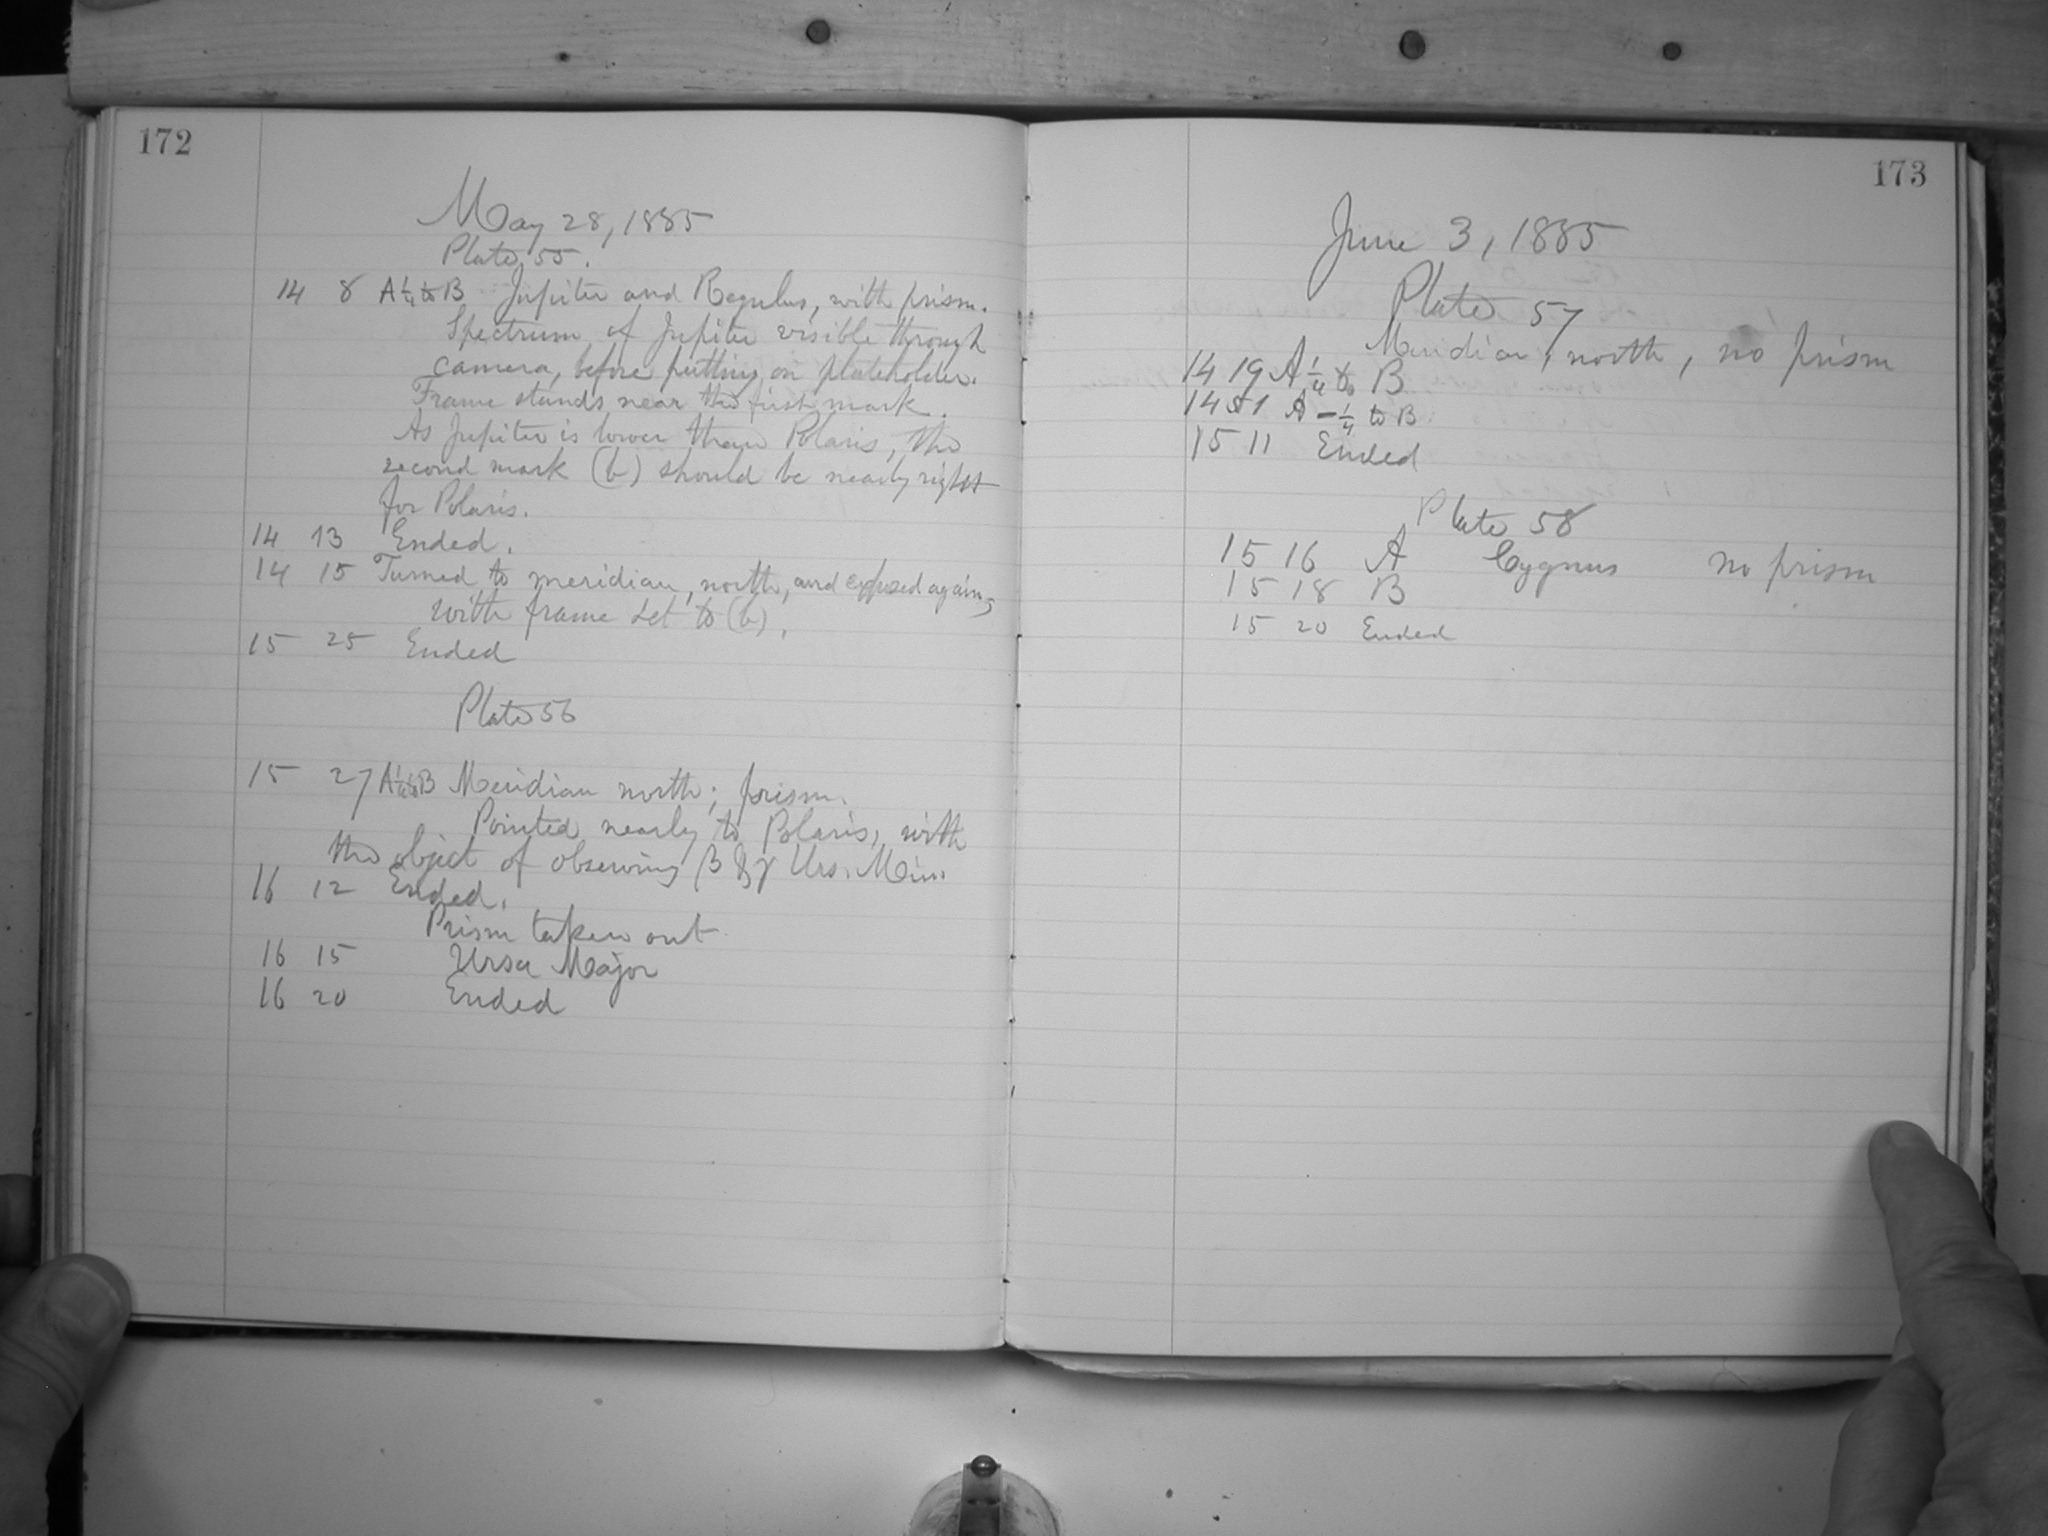 172
May 28, 1885
Plate 55.
14 8 A 1/4 to B Jupiter and Regulus, with prism.
Spectrum of Jupiter visible through
camera, before putting on plateholder.
Frame stands near the first mark.
As Jupiter is lower than Polaris, the
second mark (b) should be nearly right
for Polaris.
14 13 Ended.
14 15 Turned to meridian, north, and exposed again,
with frame set to (b).
15 25 Ended
Plate 56
15 27 A 1/4 to B Meridian north; prism.
Pointed nearly to Polaris, with
the object of observing β & γ Urs. Min.
16 12 Ended.
Prism taken out
16 15 Ursa Major
16 20 Ended
173
June 3, 1885
Plate 57
Meridian, north, no prism
14 19 A 1/4 to B
14 51 A - 1/4 to B
15 11 Ended
Plate 58
15 16 A Cygnus no prism
15 18 B
15 20 Ended